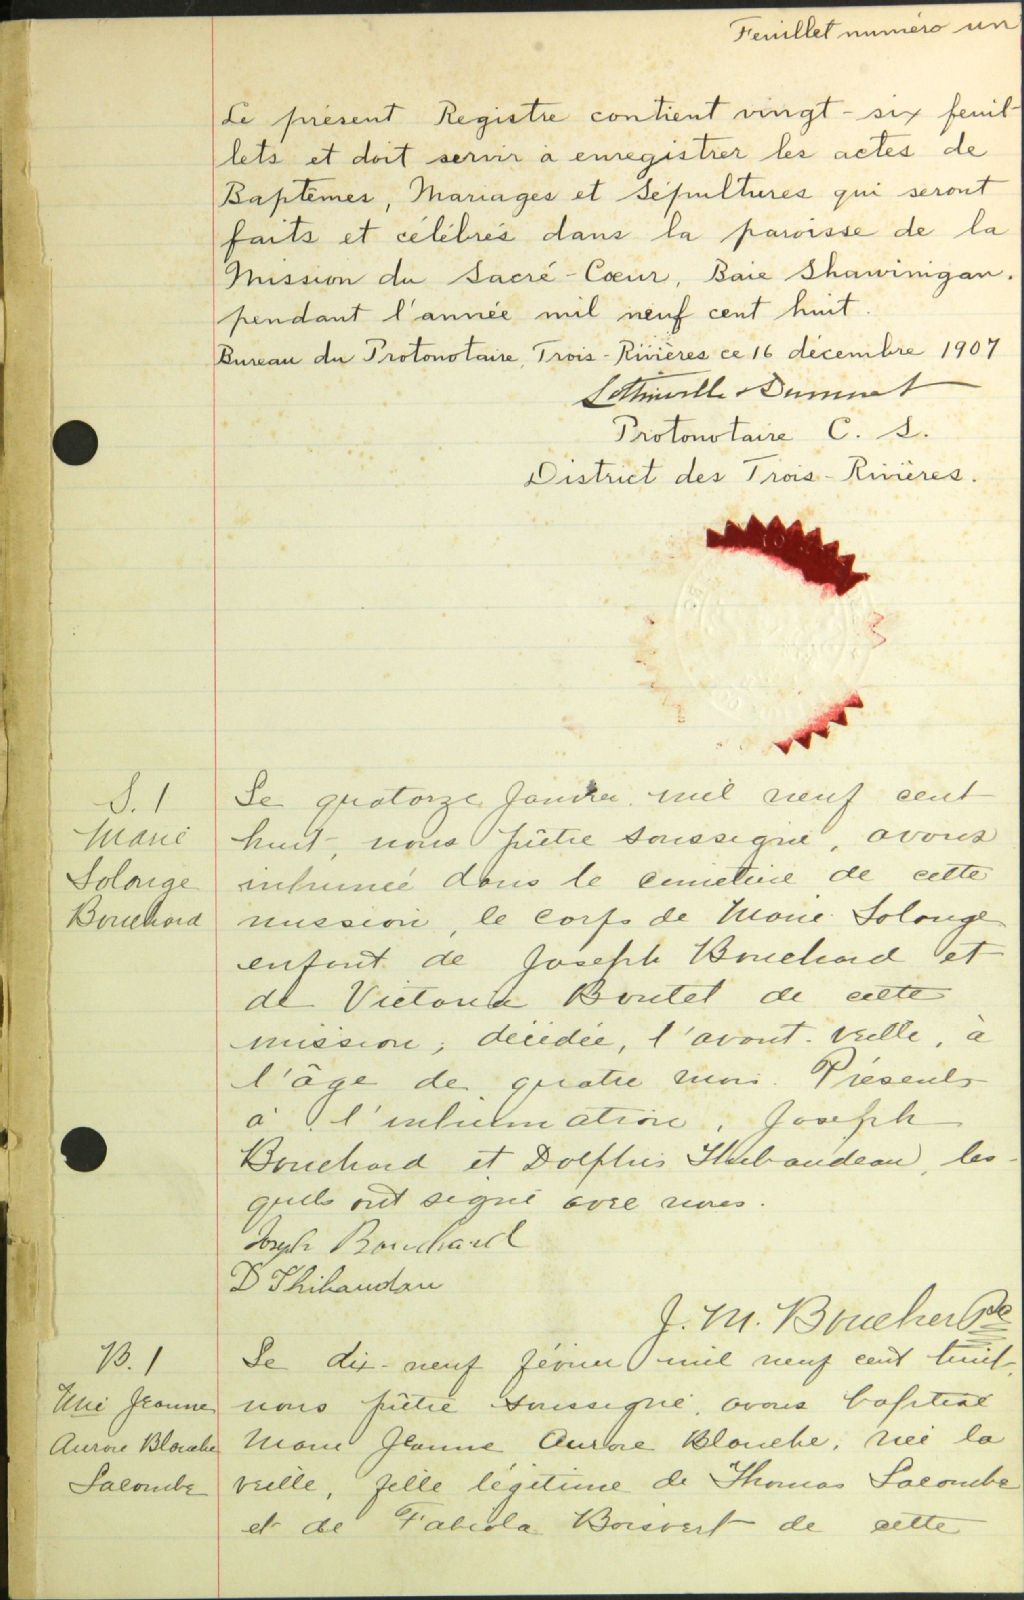 Feuillet numéro un
Le présent Registre contient vingt-six feuil-
lets et doit servir à enregistrer les actes de
Baptêmes, Mariages et Sépultures qui seront
faits et célébrés dans la paroisse de la
Mission du Sacré-Cœur, Baie Shawinigan.
pendant l'année mil neuf cent huit.
Bureau du Protonotaire, Trois-Rivières ce 16 décembre 1907
Protonotaire C. S.
District des Trois-Rivières.
S. 1
Marie
Solange
Bouchard
Le quatorze Janvier mil neuf cent
huit, nous prêtre soussigné, avons
inhumé dans le cimetière de cette
mission, le corps de Marie Solange
enfant de Joseph Bouchard et
de Victoria Boutet de cette
mission, décédée, l'avant-veille, à
l'âge de quatre mois. Présents
à l'inhumation, Joseph
Bouchard et Dolphis Thibaudeau, les-
quels ont signé avec nous.
Joseph Bouchard
D Thibaudau
J. M. Boucher Ptre
B. 1
Mrie Jeanne
Aurore Blanche
Lacombe
Le dix-neuf février mil neuf cent huit,
nous prêtre soussigné, avons baptisé
Marie Jeanne Aurore Blanche, née la
veille, fille légitime de Thomas Lacombe
et de Fabiola Boisvert de cette